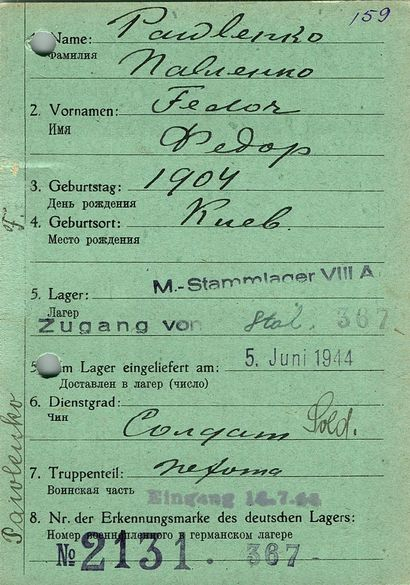 159
1. Name: Pawlenko
Фамилия
Павленко
2. Vornamen: Fedor
Имя
Федор
3. Geburtstag: 1904
День рождения
4. Geburtsort: Киев
Место рождения
M.-Stammlager VIII A
5. Lager:
Лагер
Zugang von Stal. 367
5. Im Lager eingeliefert am: 5. Juni 1944
Доставлен в лагер (число)
6. Dienstgrad:
Чин
Солдат Sold.
7. Truppenteil: пехота
Воинская часть
Eingang 14.7.44
8. Nr. der Erkennungsmarke des deutschen Lagers:
Номер военнопленного в германском лагере
№ 2131. 367-
Pawlenko F.